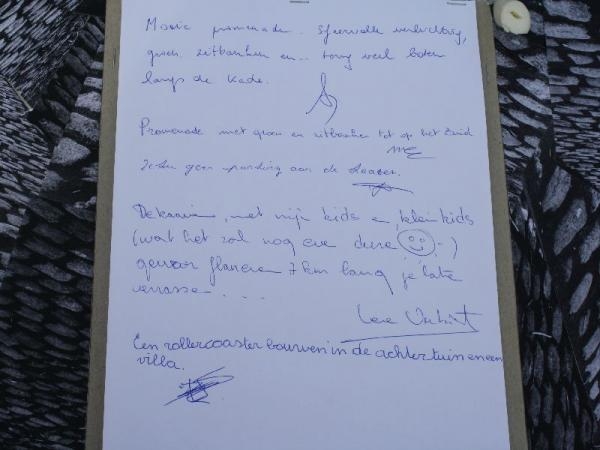 Mooie promenade.. sfeervolle verlichting,
groen, zitbanken en.. terug veel boten
langs de kade.
Promenade met groen en zitbanken tot op het Zuid
geen aan de
De kaaien, met mijn kids en klein kids
(want het zal nog eve dure :-)
gewoon flaneren 7 km lang je late
verrasse....
Een rollercoaster bouwen in de achtertuin en een
villa.